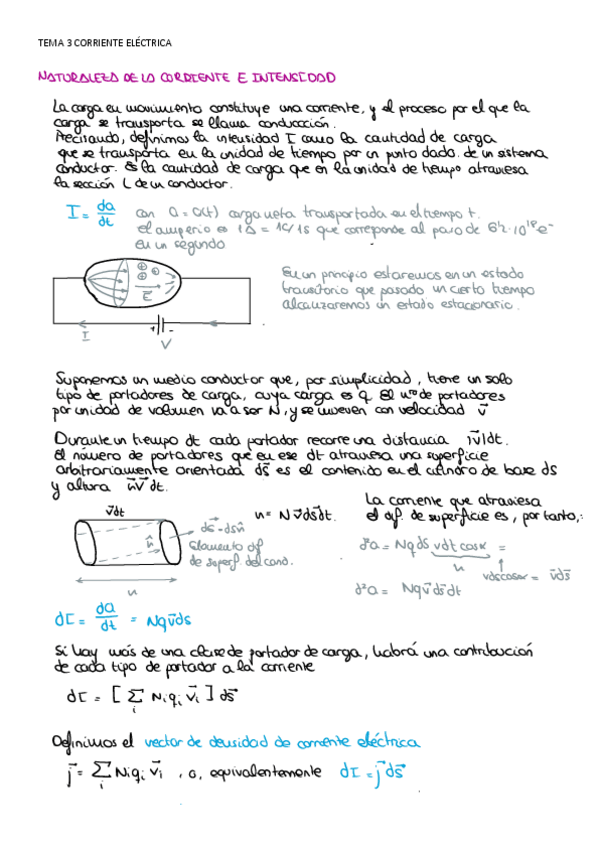 TEMA 3 CORRIENTE ELÉCTRICA
NATURALEZA DE LA CORRIENTE E INTENSIDAD
La carga en movimiento constituye una corriente, y el proceso por el que la
carga se transporta se llama conducción.
Precisando, definimos la intensidad I como la cantidad de carga
que se transporta en la unidad de tiempo por un punto dado de un sistema
conductor. Es la cantidad de carga que en la unidad de tiempo atraviesa
la sección L de un conductor.
I = dQ/dt con Q = Q(t) carga neta transportada en el tiempo t.
el amperio es 1A = 1C/1s que corresponde al paso de 6'2·10^18 e-
en un segundo
En un principio estaremos en un estado
transitorio que pasado un cierto tiempo
alcanzaremos un estado estacionario.
E
I
V
Suponemos un medio conductor que, por simplicidad, tiene un solo
tipo de portadores de carga, cuya carga es q. El nº de portadores
por unidad de volumen va a ser N, y se mueven con velocidad v⃗
Durante un tiempo dt cada portador recorre una distancia |v⃗|dt.
El número de portadores que en ese dt atraviesa una superficie
arbitrariamente orientada ds⃗ es el contenido en el cilindro de base ds
y altura n⃗v⃗dt.
La corriente que atraviesa
el dif. de superficie es, por tanto,:
v⃗dt
n = N v⃗ds⃗dt.
ds⃗ = dsn̂
n̂
Elemento dif
de superf. del cond.
n
d²Q = Nq ds vdt cosα =
n
vdscosα = v⃗ds⃗
d²Q = Nqv⃗ds⃗dt
dI = dQ/dt = Nqv⃗ds
Si hay más de una clase de portador de carga, habrá una contribución
de cada tipo de portador a la corriente
dI = [ Σi Ni qi v⃗i ] ds⃗
Definimos el vector de densidad de corriente eléctrica
j⃗ = Σi Ni qi v⃗i , o, equivalentemente dI = j⃗ds⃗